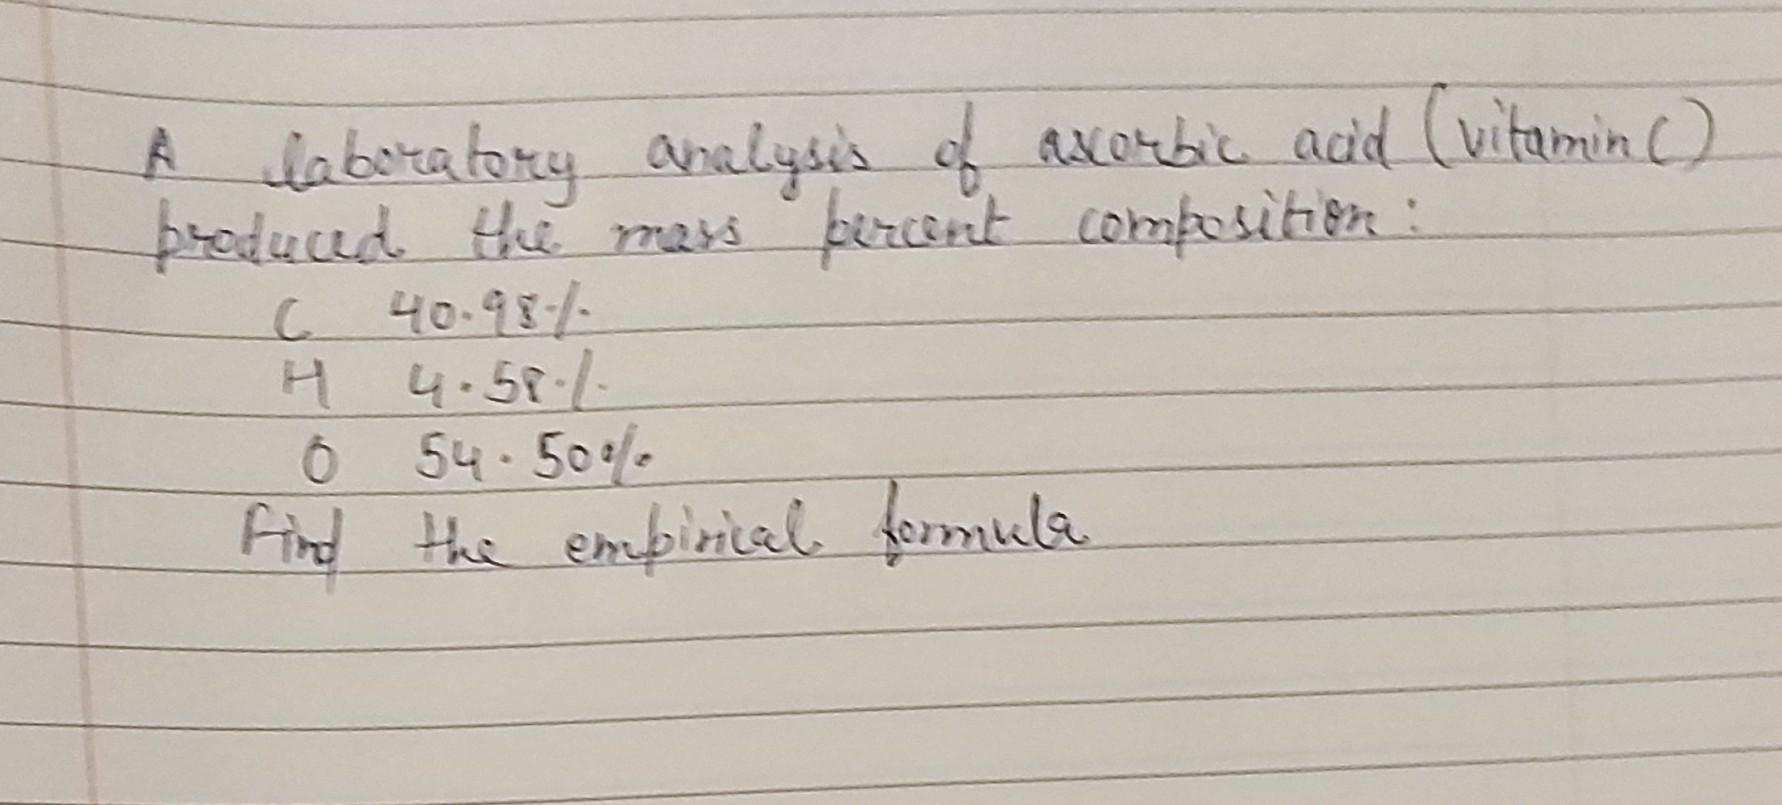 A laboratory analysis of ascorbic acid (vitamin C)
produced the mass percent composition:
C 40.98%
H 4.58%
O 54.50%
Find the empirical formula